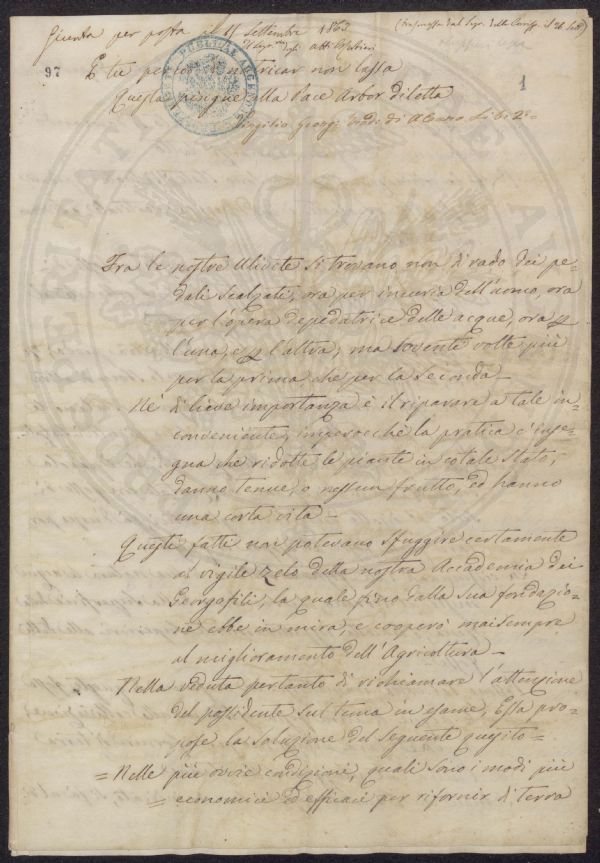 Giunta per posta il 17 Settembre 1863
(trasmessa dal Segr. delle Corrisp. il 26 Sett.)
97
E tu perciò di nutricar non lassa
1
Questa pingue alla Pace Arbor diletta
Virgilio Georg. di Libr. 2o
Fra le nostre Ulivete si trovano non di rado dei pe-
dali scalzati, ora per incuria dell'uomo, ora
per l'opera depredatrice delle acque, ora p.
l'una, e p. l'altra, ma sovente volte più
per la prima che per la seconda –
Nè di lieve importanza è il riparare a tale in-
conveniente, imperocchè la pratica c'inse-
gna che ridotte le piante in cotale stato,
danno tenue, o nessun frutto, ed hanno
una corta vita –
Questi fatti non potevano sfuggire certamente
al vigile zelo della nostra Accademia dei
Georgofili, la quale fino dalla sua fondazio-
ne ebbe in mira, e cooperò maisempre
al miglioramento dell'Agricoltura –
Nella veduta pertanto di richiamare l'attenzione
del possidente sul tema in esame, Essa pro-
pose la soluzione del seguente quesito =
= Nelle più ovvie condizioni, quali sono i modi più
= economici ed efficaci per rifornir di terra